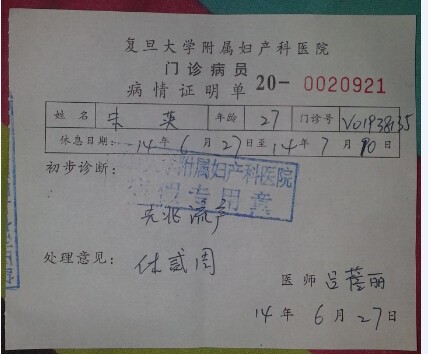 复旦大学附属妇产科医院
门诊病员
病情证明单 20- 0020921
姓名 朱英 年龄 27 门诊号 V01938135
休息日期: 14年6月27日至14年7月10日
初步诊断:
附属妇产科医院
证明专用章
先兆流产
处理意见: 休贰周
医师 吕蓓丽
14年6月27日